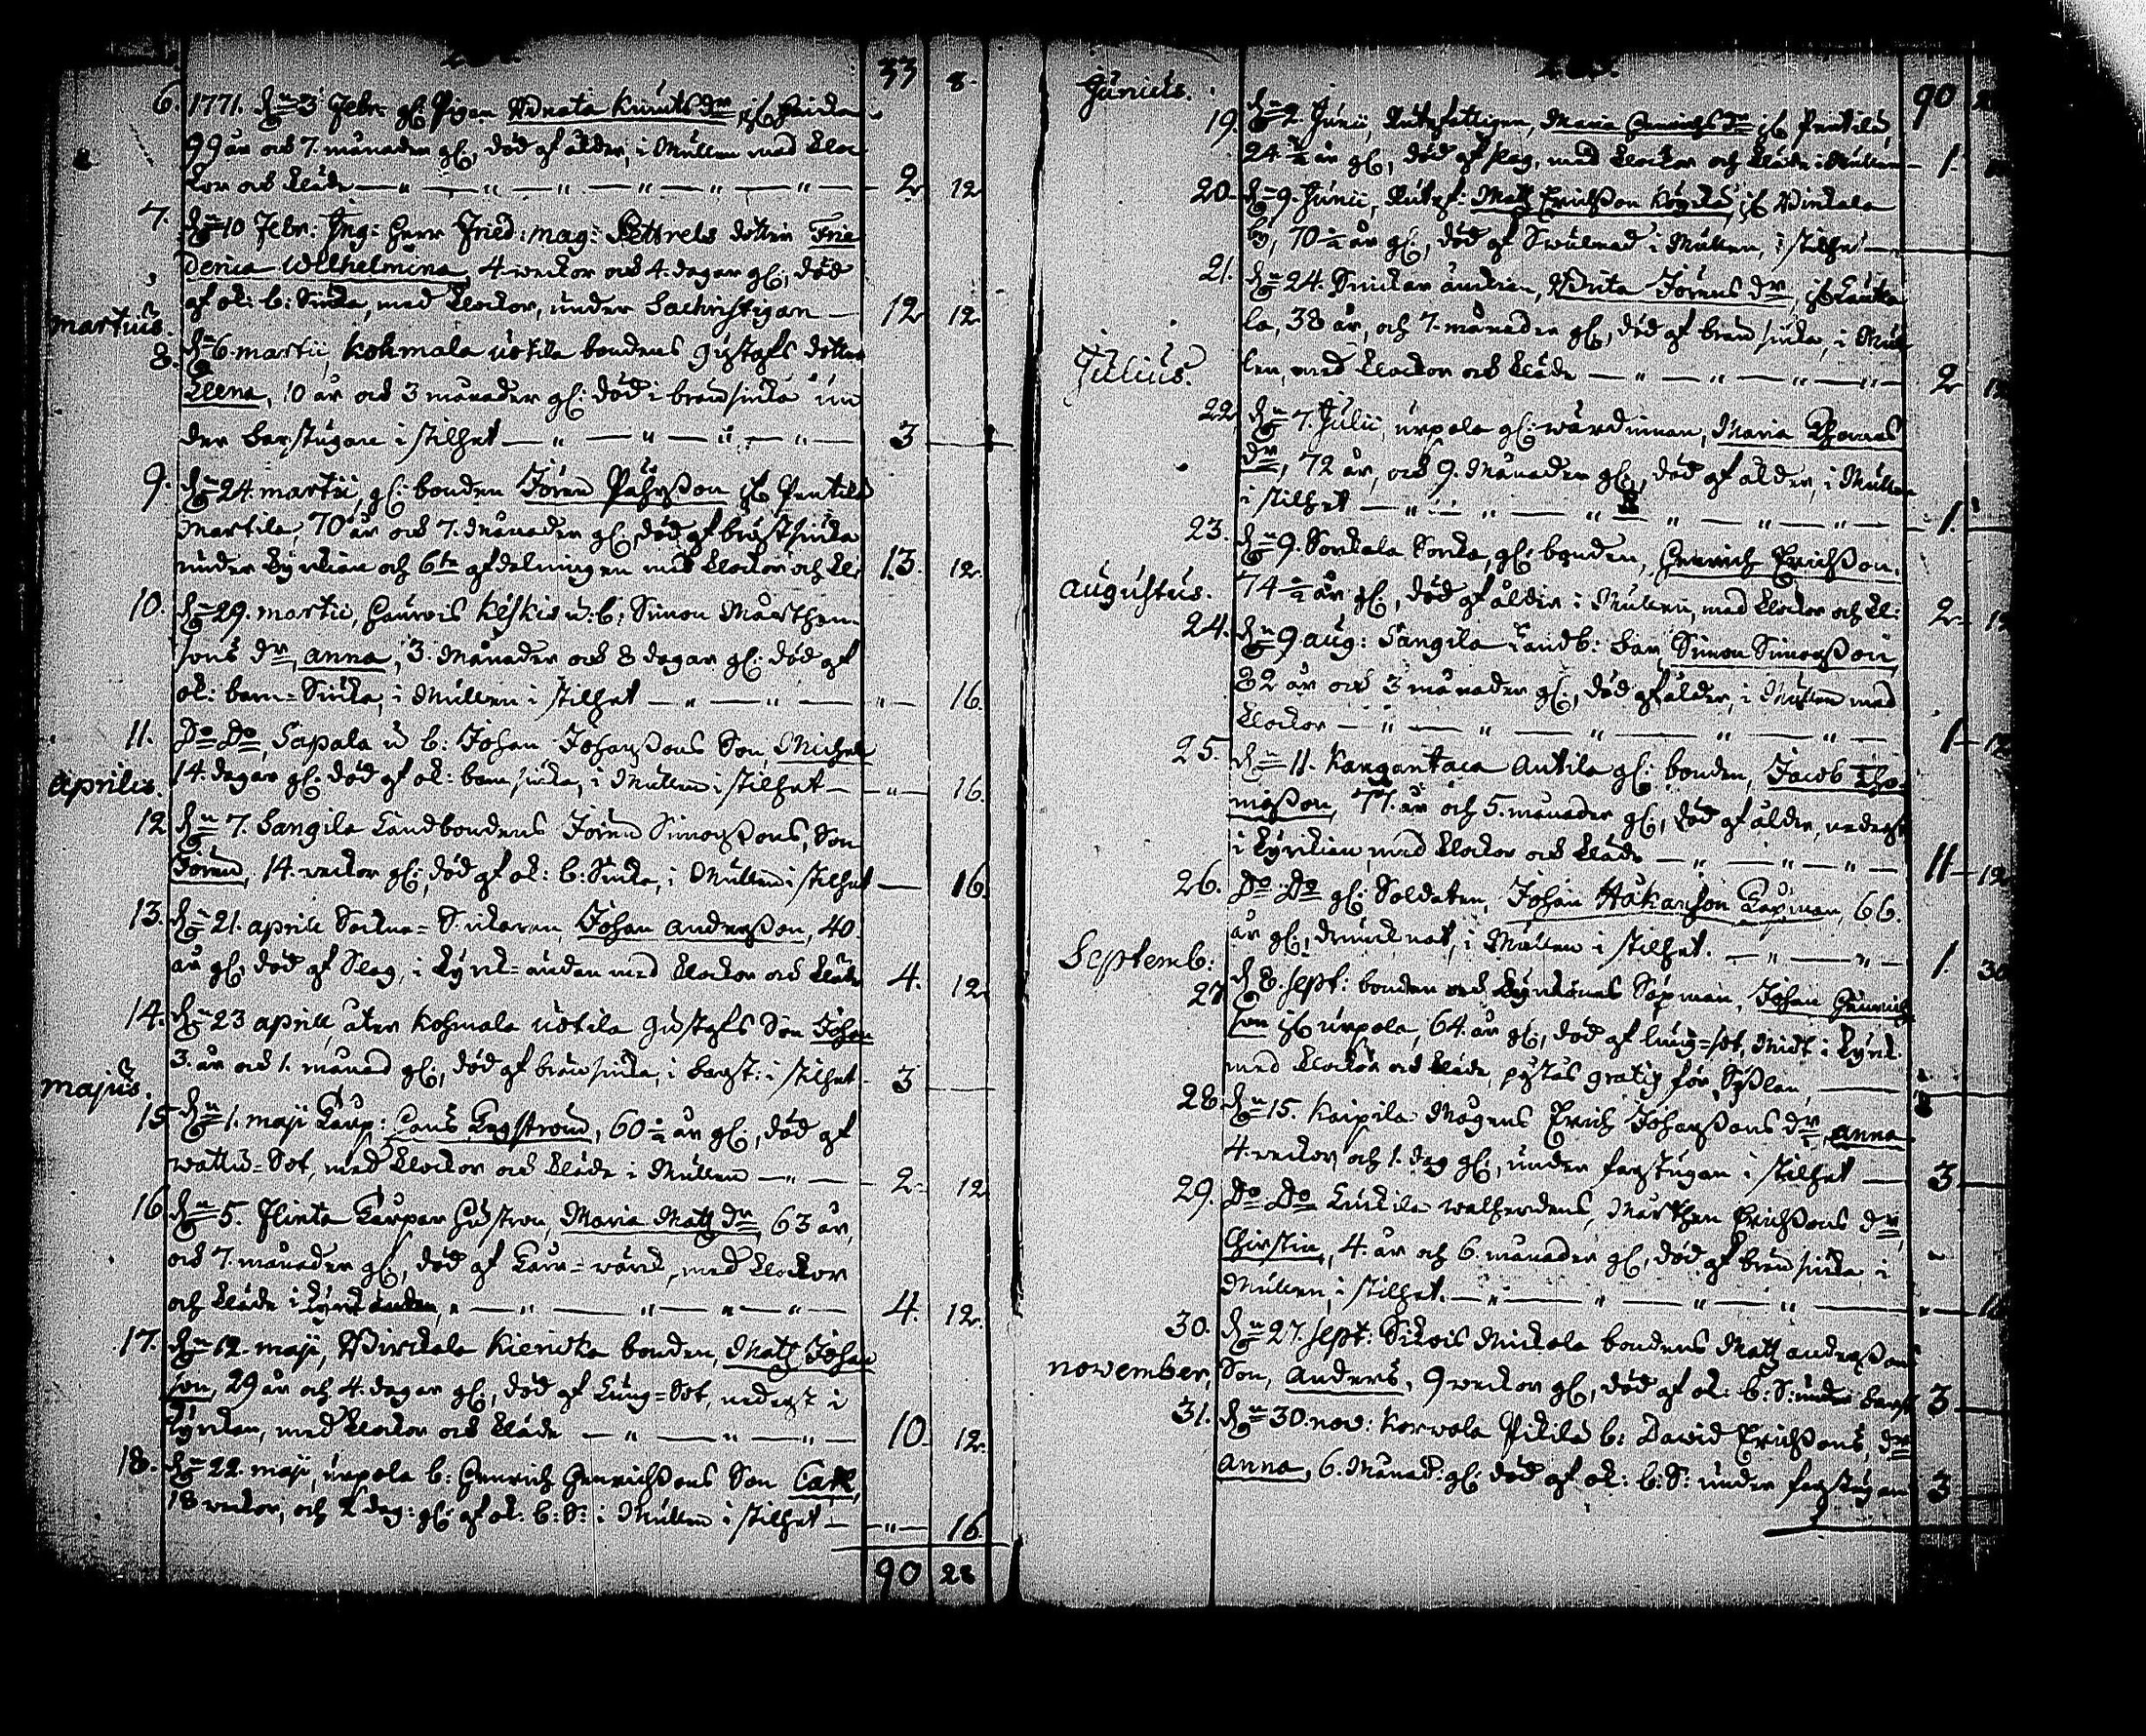 33 8.
6. 1771. d. 3 Febr: gl. Pigan Knutsdr
99 år och 7. månader gl, död af ålder, i Mullen med kloc
kor och kläde 2. 12
7. d. 10 Febr: Ing: Herr Fried: mag: dotter Frie
derica Wilhelmina, 4 weckor och 4. dagar gl, död
af ok: b: Siuka, med klockor, under Sachristigan 12 12
martius.
8. d. 6. martii, Kohmala uotila bondens Gustafs dotter
Elena, 10 år och 3 månader gl: död i brånsiuka un
der barstugan i stilhet 3
9. d. 24. martii, gl: bonden Jören Påhrsson
Martila, 70 år och 7. Månader gl, död af bröstsiuka
under kyrkian och 6te afdelningen med klockor och kl: 13. 12
10. d. 29. martii, Keskis u: b: Simon Mårthen
sons dr anna, 3. Månader och 8 dagar gl: död af
ok: barn-Siuka, i Mullen i stilhet 16.
11. Do Do, Sapala u b: Johan Johanssons Son, Michel
14. dagar gl: död af ok: barnsiuka, i Mullen i stilhet 16.
Aprilis.
12 d. 7. Sangila Landbondens Jören Simonssons, Son
Jören, 14. weckor gl: död af ok: b: Siuka, i Mullen i stilhet 16.
13. d. 21. aprill Sockne- Johan andersson, 40.
år gl, död af Slag, i kyrk-ändan med klockor och kläde 4. 12
14. d. 23 aprill, åter Kohmala uotila Gustafs Son Johan
3. år och 1. månad gl, död af brånsiuka, i barst: i stilhet 3
majus.
15 d. 1. maji 60 ½ år gl, död af
wattu-Sot, med klockor och kläde i Mullen 2 12
16 d. 5. Flinta Maria Matzdr, 63 år,
och 7. månader gl, död af med klockor
och kläde i kyrkändan, 4. 12.
17. d. 12. maji, bonden, Matz Johan
son, 29 år och 4. dagar gl, död af Lung-Sot, nederst i
kyrkan, med klockor och kläde 10 12.
18. d. 22. maji, urpola b: Henrich Henrichssons Son Carl,
18 weckor, och 1 dag: gl: af ok: b: S: i Mullen i stilhet 16.
90 28
Junius. 90
19. d. 2. Junii, Rutefattigen, Maria Henrichsdr
24 ½ år gl, död af slag, med klockor och kläde i Mullen 1.
20. d. 9. Junii, Matz Erichsson
by, 70 ½ år gl, död af Swulnad i Mullen, i stilhet
21. d. 24. änkian, Jörensdr,
la, 38 år, och 7. månader gl, död af brånsiuka, i Mul
len, med klockor och kläde 2
Julius.
22 d. 7. Julii, urpola gl: wärdinnan, Maria Thomas
dr, 72 år, och 9. Månader gl, död af ålder, i Mullen
i stilhet 1.
23. d. 9. Sorkala gl: bonden, Henrich Erichsson.
74 ½ år gl, död af ålder i Mullen, med klockor och kl: 2
augustus.
24. d. 9 aug: Sangila Landb: Simon Simonsson,
82 år och 3 månader gl, död af ålder, i Mullen med
klockor 1 12
25. d. 11. Kangantaca Antila gl: bonden, Jacob Tho
masson, 77. år och 5. månader gl, död af ålder, nederst
i kyrkian, med klockor och kläde 11 12
26. Do Do gl: Soldaten, Johan Håkansson 66.
år gl, drunknat, i Mullen i stilhet. 1.
Septemb:
27 d. 8. sept: bonden och Johan Henrich
son urpola, 64. år gl, död af lung-sot, Midt i kyrk:
med klockor och kläde, gratis för
28. d. 15. Kaipila Mogens Erich Johanssons dr, anna
4. weckor och 1. dag gl, under farstugan i stilhet 3
29. Do Do Mårthen Erichssons dr,
Christin, 4. år och 6. månader gl, död af brånsiuka i
Mullen, i stilhet.
30. d. 27. sept: Mickola bondens Matz anderssons
Son, Anders, 9 weckor gl, död af ok: b: S: under barst 3
november,
31. d. 30. nov: Korwola b: David Erichssons, dr
anna, 6. Månad: gl: död af ok: b: S: under farstugan 3